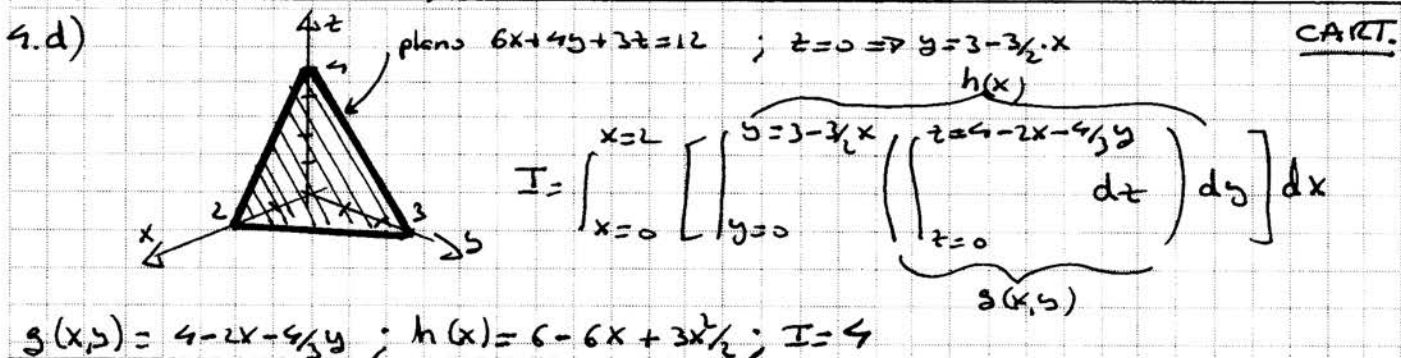 4.d)
z
plano 6x+4y+3z=12 ; z=0 ⇒ y=3-3/2·x
CART.
4
h(x)
I= ∫_{x=0}^{x=2} [ ∫_{y=0}^{y=3-3/2x} ( ∫_{z=0}^{z=4-2x-4/3y} dz ) dy ] dx
g(x,y)
2
3
x
y
g(x,y) = 4-2x-4/3y ; h(x) = 6-6x+3x²/2 ; I=4